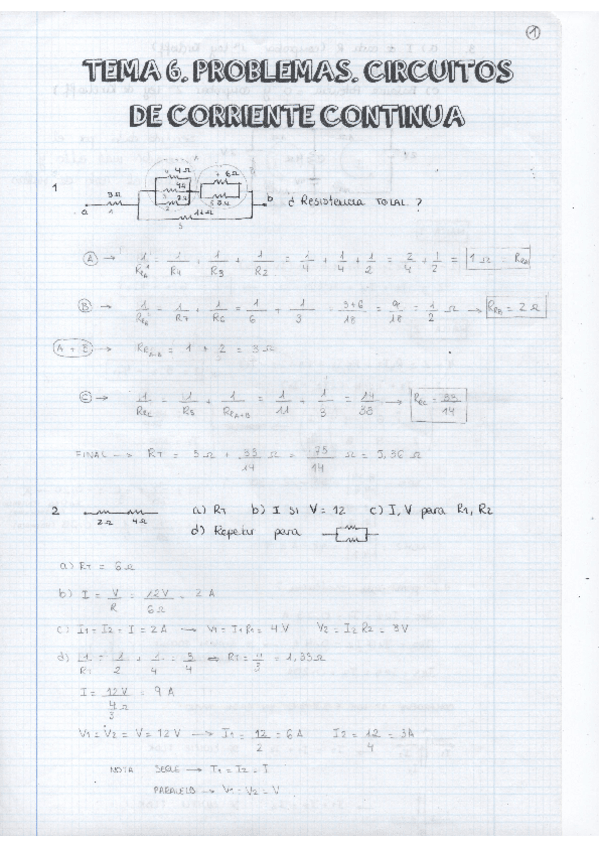 1
TEMA 6. PROBLEMAS. CIRCUITOS
DE CORRIENTE CONTINUA
1
a
b
¿ Resistencia TOTAL ?
A → 1/R4 + 1/R3 + 1/R2 = 1/4 + 1/4 + 1/2 = 2/4 + 1/2 = 1 Ω
B → 1/R7 + 1/R6 = 1/6 + 1/3 = 3+6/18 = 9/18 = 1/2 Ω → ReB = 2 Ω
A + B → ReA+B = 1 + 2 = 3 Ω
C → 1/ReC = 1/R5 + 1/ReA+B = 1/11 + 1/3 = 14/33 → ReC = 33/14
FINAL → RT = 3 Ω + 33/14 Ω = 75/14 Ω = 5,36 Ω
2 2Ω 4Ω a) RT b) I si V = 12 c) I, V para R1, R2
d) Repetir para
a) RT = 6 Ω
b) I = V/R = 12V/6Ω = 2 A
c) I1 = I2 = I = 2 A → V1 = I1 R1 = 4 V V2 = I2 R2 = 8 V
d) 1/RT = 1/2 + 1/4 = 3/4 ⇒ RT = 4/3 = 1,33 Ω
I = 12 V / 4/3 Ω = 9 A
V1 = V2 = V = 12 V → I1 = 12/2 = 6 A I2 = 12/4 = 3A
NOTA SERIE → I1 = I2 = I
PARALELO → V1 = V2 = V